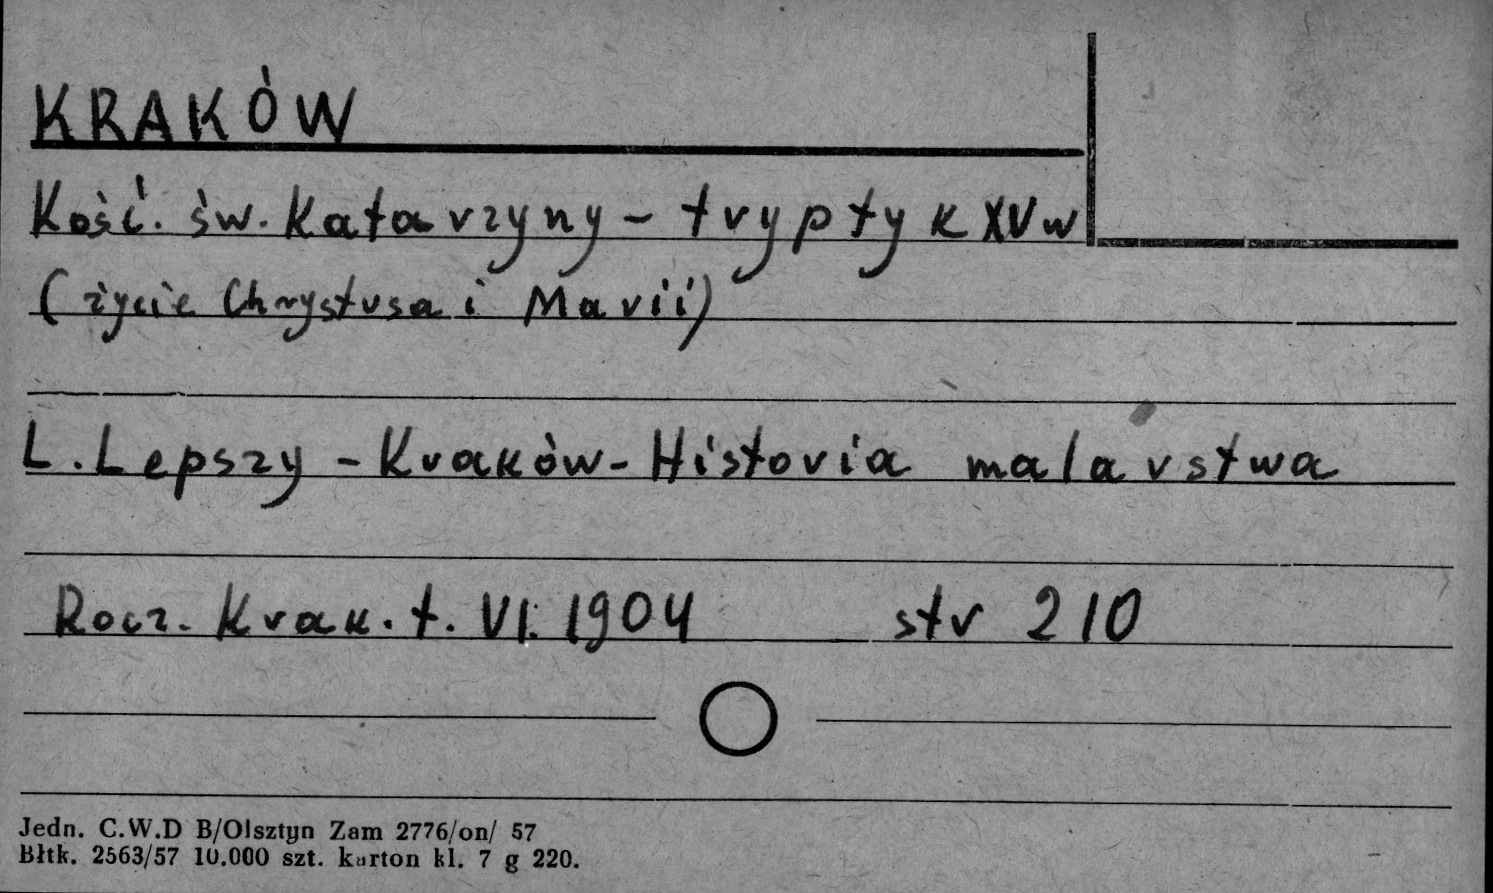 KRAKÓW
Kość. św. Katarzyny - tryptyk XV w
(życie Chrystusa i Marii)
L. Lepszy - Kraków - Historia malarstwa
Rocz. Krak. t. VI. 1904 str 210
Jedn. C.W.D B/Olsztyn Zam 2776/on/ 57
Błtk. 2563/57 10.000 szt. karton kl. 7 g 220.